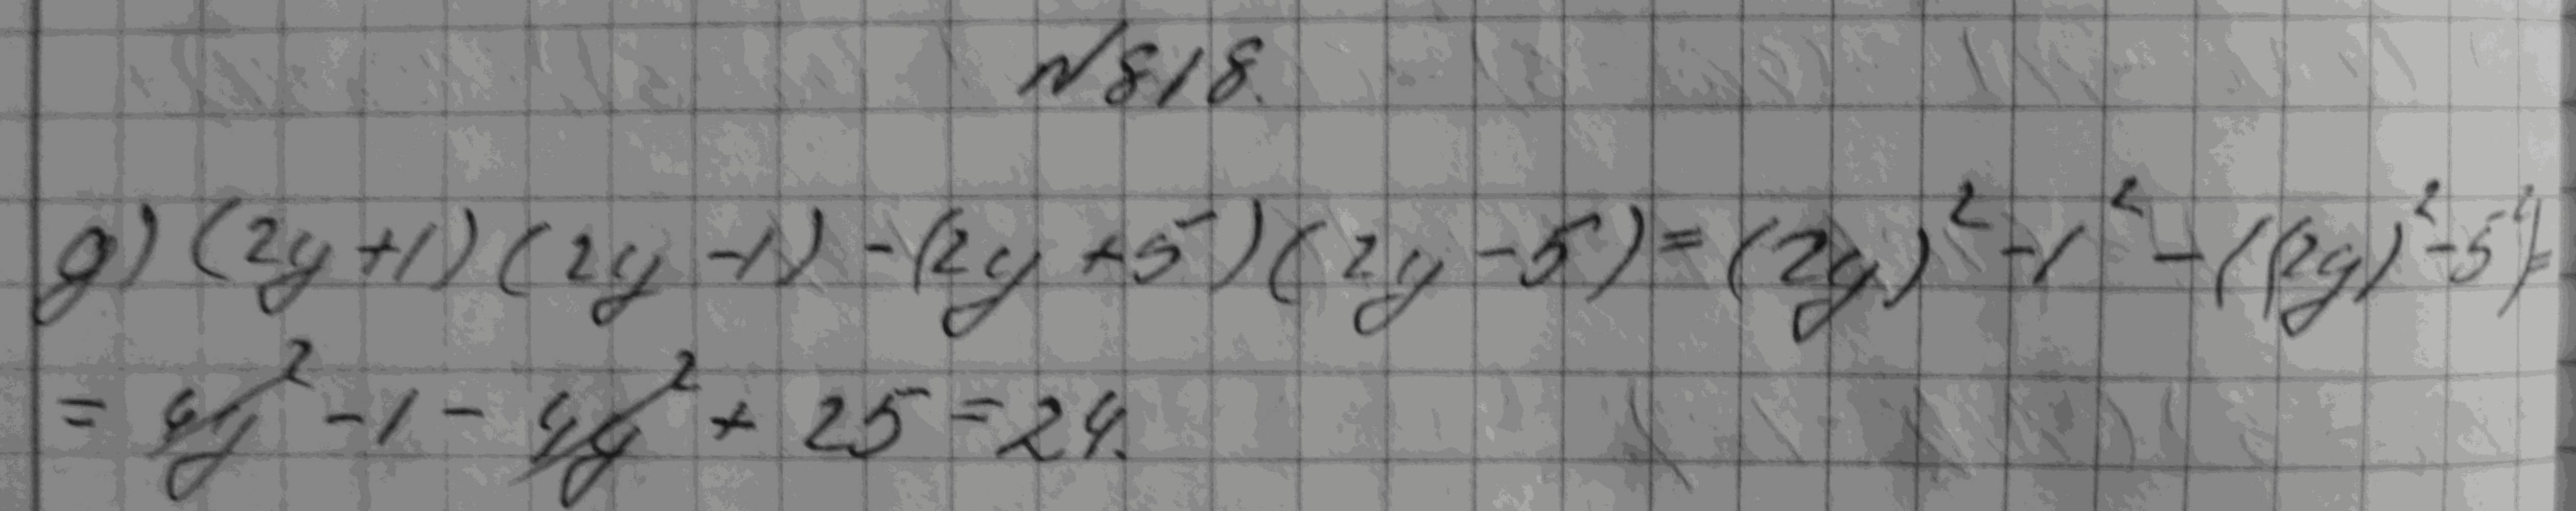 №818.
д) (2y+1)(2y-1)-(2y+5)(2y-5)=(2y)²-1²-((2y)²-5²)=
=4y²-1-4y²+25=24.